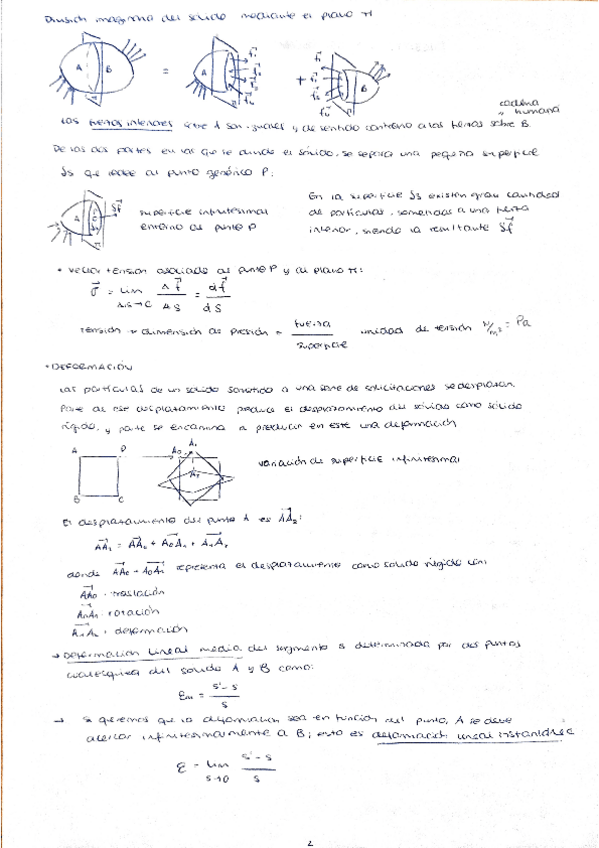 División imaginaria del sólido mediante el plano π
A B = A + B
cadena
humana
Las fuerzas interiores sobre A son iguales y de sentido contrario a las fuerzas sobre B.
De las dos partes en las que se divide el sólido, se separa una pequeña superficie
δs que rodee al punto genérico P:
superficie infinitesimal
entorno al punto P
En la superficie δs existen gran cantidad
de partículas, sometidas a una fuerza
interior, siendo la resultante δf
• Vector tensión asociado al punto P y al plano π:
σ = lim Δs→0 Δf/ΔS = df/dS
tensión → dimensión de presión = fuerza/superficie unidad de tensión N/m² = Pa
• DEFORMACIÓN
Las partículas de un sólido sometido a una serie de solicitaciones se desplazan.
Parte de ese desplazamiento produce el desplazamiento del sólido como sólido
rígido, y parte se encamina a producir en este una deformación
A D B C A₀ A₁ A₂
variación de superficie infinitesimal
El desplazamiento del punto A es AA₂:
AA₂ = AA₀ + A₀A₁ + A₁A₂
donde AA₀ + A₀A₁ representa el desplazamiento como sólido rígido con:
AA₀: traslación
A₀A₁: rotación
A₁A₂: deformación
→ Deformación lineal media del segmento s determinada por dos puntos
cualesquiera del sólido A y B como:
εm = s'-s / s
→ Si queremos que la deformación sea en función del punto, A se debe
acercar infinitesimalmente a B; esto es deformación lineal instantánea
ε = lim s→0 s'-s / s
2